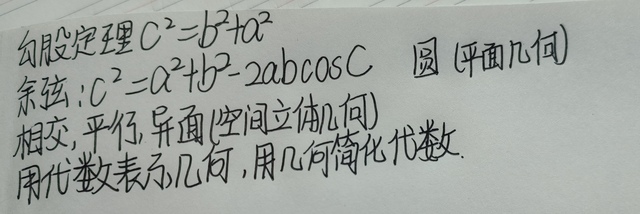 勾股定理 C²=b²+a²
余弦:C²=a²+b²-2abcosC 圆(平面几何)
相交,平行,异面(空间立体几何)
用代数表示几何,用几何简化代数.